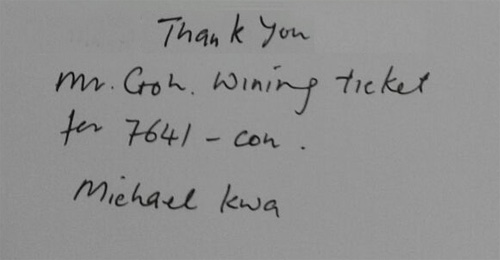 Thank You
Mr. Goh. Wining ticket
for 7641 - con.
Michael Kwa